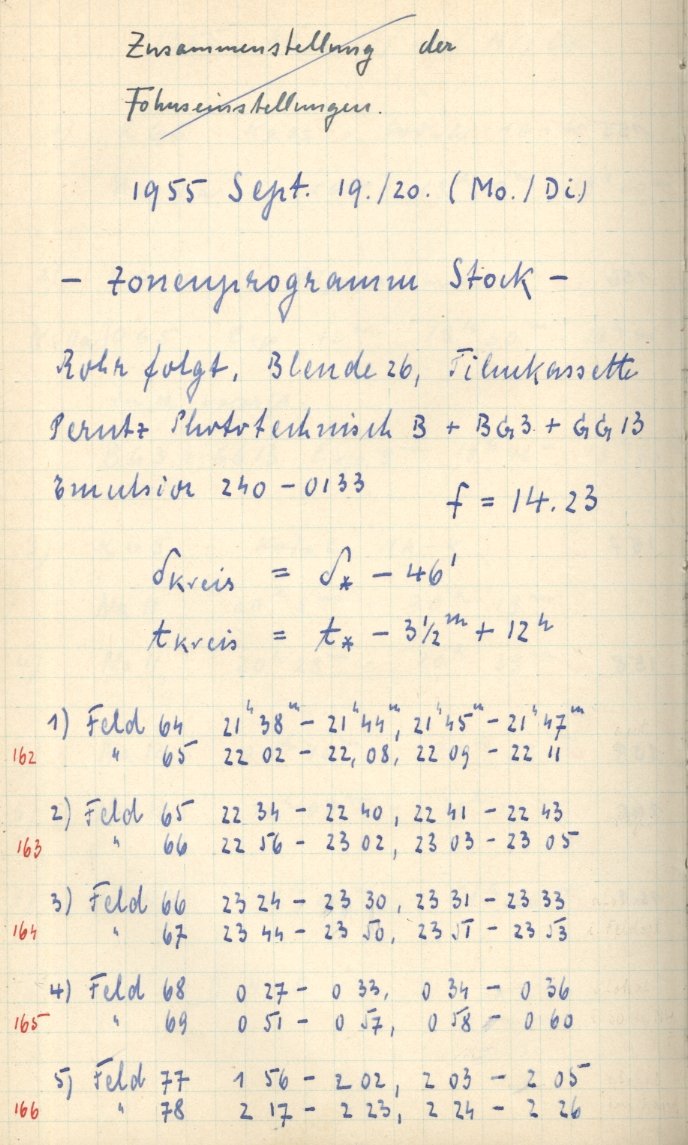 Zusammenstellung der
Fokuseinstellungen.
1955 Sept. 19./20. (Mo./Di)
- Zonenprogramm Stock -
Rohr folgt, Blende 26, Filmkassette
Perutz Phototechnisch B + BG3 + GG13
Emulsion 240-0133
f = 14.23
δkreis = δ* - 46'
tkreis = t* - 3½m + 12h
1) Feld 64 21h 38m - 21h 44m, 21h 45m - 21h 47m
162 " 65 22 02 - 22, 08, 22 09 - 22 11
2) Feld 65 22 34 - 22 40, 22 41 - 22 43
163 " 66 22 56 - 23 02, 23 03 - 23 05
3) Feld 66 23 24 - 23 30, 23 31 - 23 33
164 " 67 23 44 - 23 50, 23 51 - 23 53
4) Feld 68 0 27 - 0 33, 0 34 - 0 36
165 " 69 0 51 - 0 57, 0 58 - 0 60
5) Feld 77 1 56 - 2 02, 2 03 - 2 05
166 " 78 2 17 - 2 23, 2 24 - 2 26